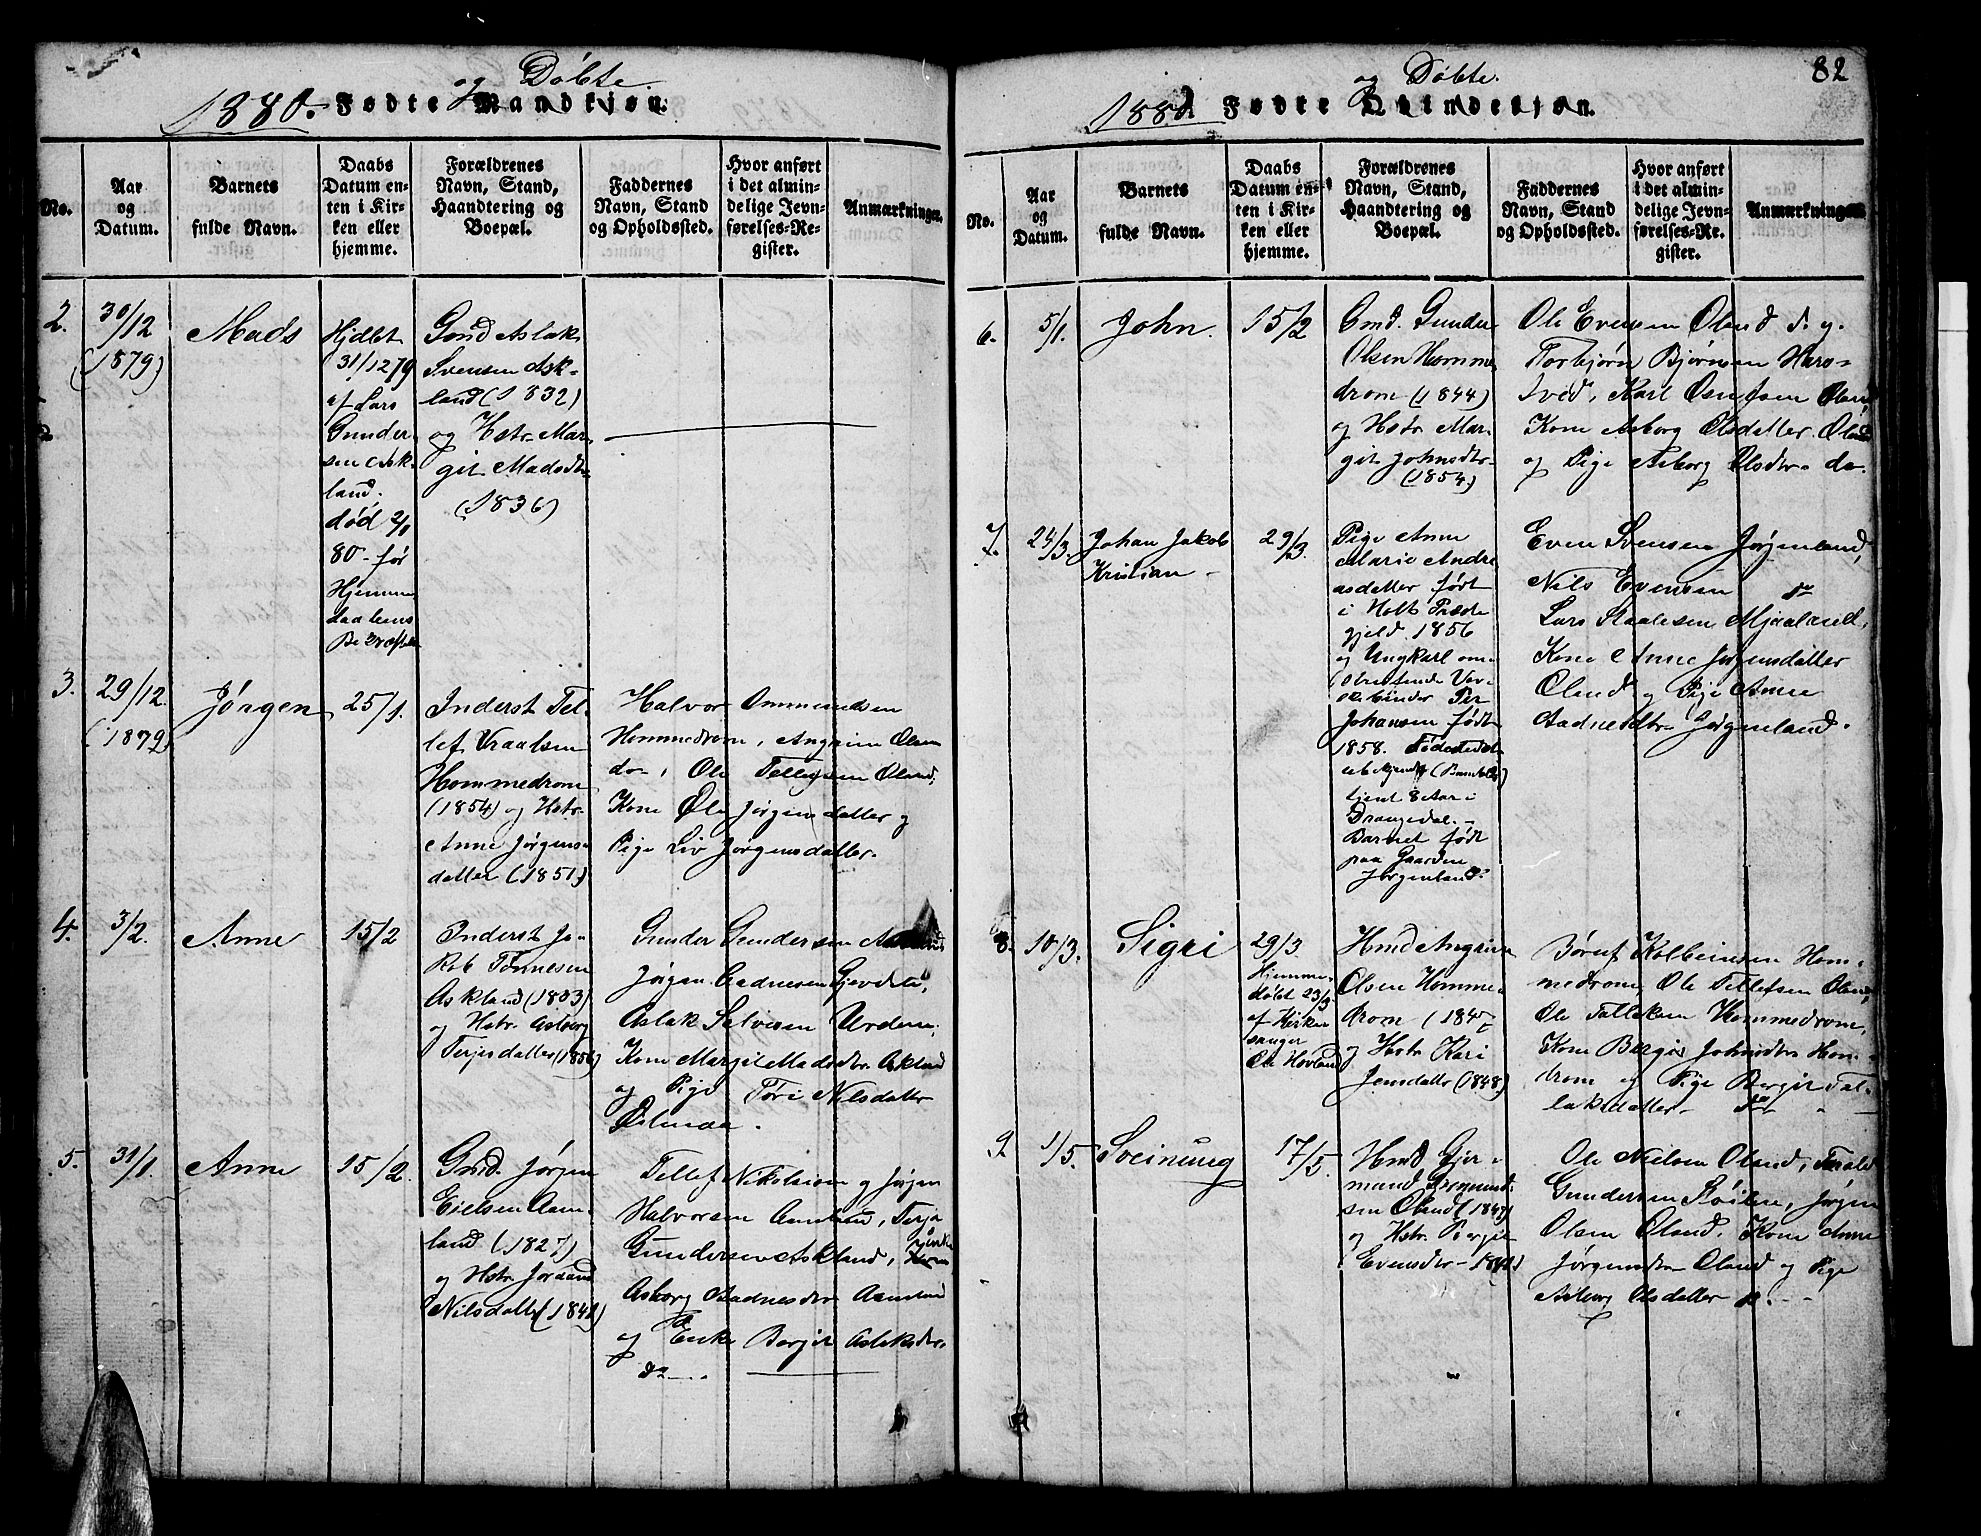 og Døbte.
1880. Fødte Mandkjøn.
No.
Aar
og
Datum.
Barnets
fulde Navn.
Daabs
Datum en-
ten i Kir-
ken eller
hjemme.
Forældrenes
Navn, Stand,
Haandtering og
Boepæl.
Faddernes
Navn, Stand
og Opholdssted.
Hvor anført
i det almin-
delige Jevn-
førelses-Re-
gister.
Anmærkninger.
2.
30/12
(1879)
Mads
Hjdbt
31/12 79
af Lars
Gunder-
sen Ask-
land,
død 2/1
80 - før
Hjemme
daabens
Gmd Aslak
Svensen Ask-
land (1832)
og Hstr. Mar-
git Madsdtr
(1836)
3.
29/12.
(1879)
Jørgen
25/1.
Inderst Tel-
lef Vraalsen
Hommedrom
(1854) og Hstr.
Anne Jørgens-
datter (1851)
Halvor Ommundsen
Hommedrom, Angrim Olsen
do-, Ole Tellefsen Øland,
Kone Øle Jørgensdatter og
Pige Liv Jørgensdatter.
4.
3/2.
Anne
15/2
Inderst Ja-
kob Tønnesen
Askland (1853)
og Hstr. Asberg
Terjesdatter (1856)
Gunder Gundersen
Jørgen Aadnesen Gjevdeli,
Aslak Salvesen Urdem,
Kone Margit Madsdtr. Askland
og Pige Tøri Nilsdatter
5.
31/1.
Anne
15/2.
Gmd. Jørgen
Eielsen Aam-
land (1827)
og Hstr. Joraand
Nilsdatter (1842)
Tellef Nikolaisen og Jørgen
Halvorsen Aamland, Terje
Gundersen Askland,
Asborg Aadnesdtr Aamland
og Enke Bergit Aslaksdtr.
do.
82
og Døbte.
1880. Fødte Qvindekjøn.
No.
Aar
og
Datum.
Barnets
fulde Navn.
Daabs
Datum en-
ten i Kir-
ken eller
hjemme.
Forældrenes
Navn, Stand,
Haandtering og
Boepæl.
Faddernes
Navn, Stand
og Opholdssted.
Hvor anført
i det almin-
delige Jevn-
førelses-Re-
gister.
Anmærkninger
6.
5/1.
John.
15/2
Gmd. Gunder
Olsen Homme
drom (1844)
og Hstr. Mar-
git Johnsdtr-
(1854)
Ole Evensen Øland d. y.
Torbjørn Bjørnsen Hero-
Karl Osufsen Øland,
Kone Asborg Olsdatter Øland
og Pige Asborg Olsdtr- do.
7.
24/3.
Johan Jakob
Kristian -
29/3.
Pige Anne
Marie Andre
asdatter født
i Holt Præste
gjeld. 1856
og Ungkarl om-
Per
Johansen født
1858. Fødested
tjent 8 Aar i
Drangedal. -
Barnet født
paa Gaarden
Jørgenland.
Even Svensen Jørgenland,
Nils Evensen do
Lars Staalesen Mjaaland,
Kone Anne Jørgensdatter
Øland og Pige Anne
Aadnesdtr Jørgenland.
8.
10/3.
Sigri
29/3
Hjemme-
døbt 23/3
af Kirke
sanger
Ole Hovland
Hmd Angrim
Olsen Homme-
drom
og Hstr. Kari
Jensdatter (1848)
Børuf Kolbeinsen Hom-
medrom, Ole Tellefsen Øland,
Ole Tallaksen Hommedrom,
Kone Bergit Johnsdtr Hom-
drom og Pige Bergit Tal-
laksdatter - do
9
1/5.
Sveinung
17/5.
Hmd. Gjer-
mund
sen Øland (1847)
og Hstr. Bergit
Evensdtr-
Ole Nielsen Øland,
Gundersen Støilen, Jørgen
Olsen Øland. Kone Anne
Jørgensdtr Øland og Pige
Asborg Olsdatter do. - -